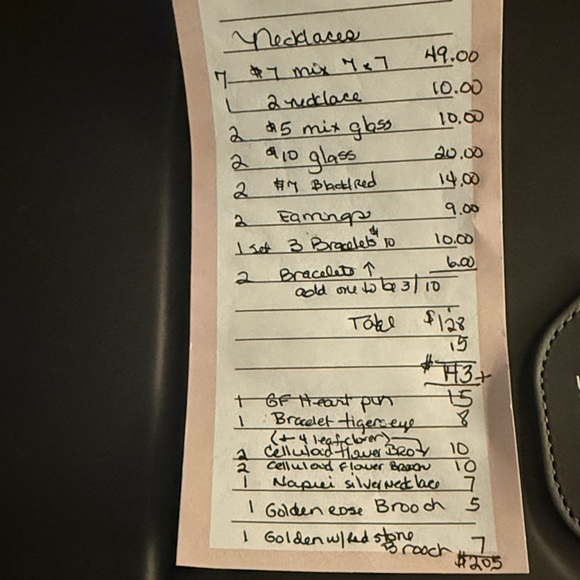 Necklaces
7 $7 mix 7x7 49.00
1 2 necklace 10.00
2 $5 mix glass 10.00
2 $10 glass 20.00
2 $7 Black/Red 14.00
2 Earrings 9.00
1 set 3 Bracelets $10 10.00
2 Bracelets ↑ 6.00
add one to be 3/10
Total $128
15
$143+
1 GF Heart pin 15
1 Bracelet tigerseye 8
(+ 4 leaf clover)
2 Celluloid flower 10
2 Celluloid Flower 10
1 Napier silver necklace 7
1 Golden rose Brooch 5
1 Golden w/Red stone
Brooch 7
$205